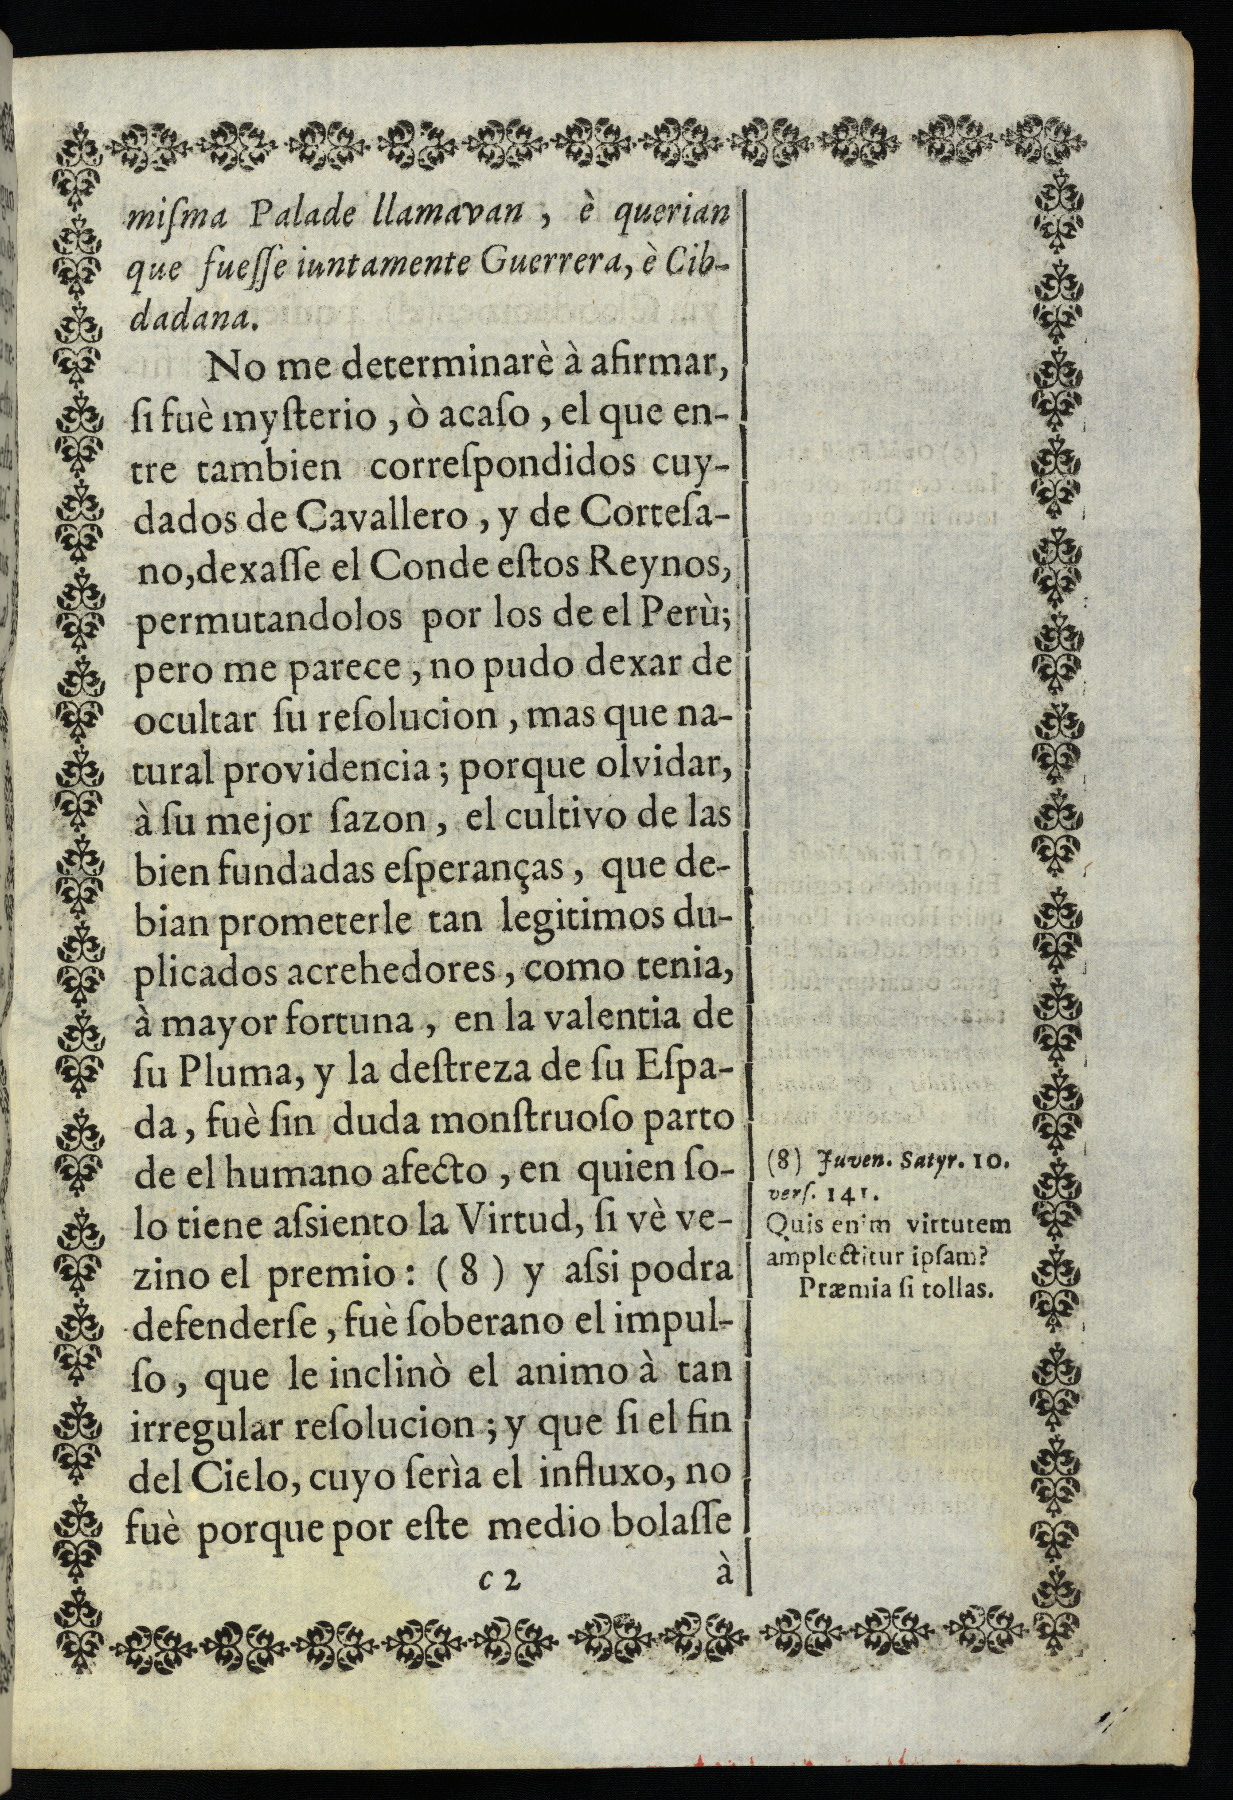 miſma Palade llamavan, è querian
que fueſſe iuntamente Guerrera, è Cib-
dadana.
No me determinarè à afirmar,
ſi fuè myſterio, ò acaſo, el que en-
tre tambien correſpondidos cuy-
dados de Cavallero, y de Corteſa-
no, dexaſſe el Conde eſtos Reynos,
permutandolos por los de el Perù;
pero me parece, no pudo dexar de
ocultar ſu reſolucion, mas que na-
tural providencia; porque olvidar,
à ſu mejor ſazon, el cultivo de las
bien fundadas eſperanças, que de-
bian prometerle tan legitimos du-
plicados acrehedores, como tenia,
à mayor fortuna, en la valentia de
ſu Pluma, y la deſtreza de ſu Eſpa-
da, fuè ſin duda monſtruoſo parto
de el humano afecto, en quien ſo-
lo tiene aſsiento la Virtud, ſi vè ve-
zino el premio: (8) y aſsi podra
defenderſe, fuè ſoberano el impul-
ſo, que le inclinò el animo à tan
irregular reſolucion; y que ſi el fin
del Cielo, cuyo ſerìa el influxo, no
fuè porque por eſte medio bolaſſe
c 2 à
(8) Juven. Satyr. 10.
verſ. 141.
Quis enim virtutem
amplectitur ipſam?
Præmia ſi tollas.